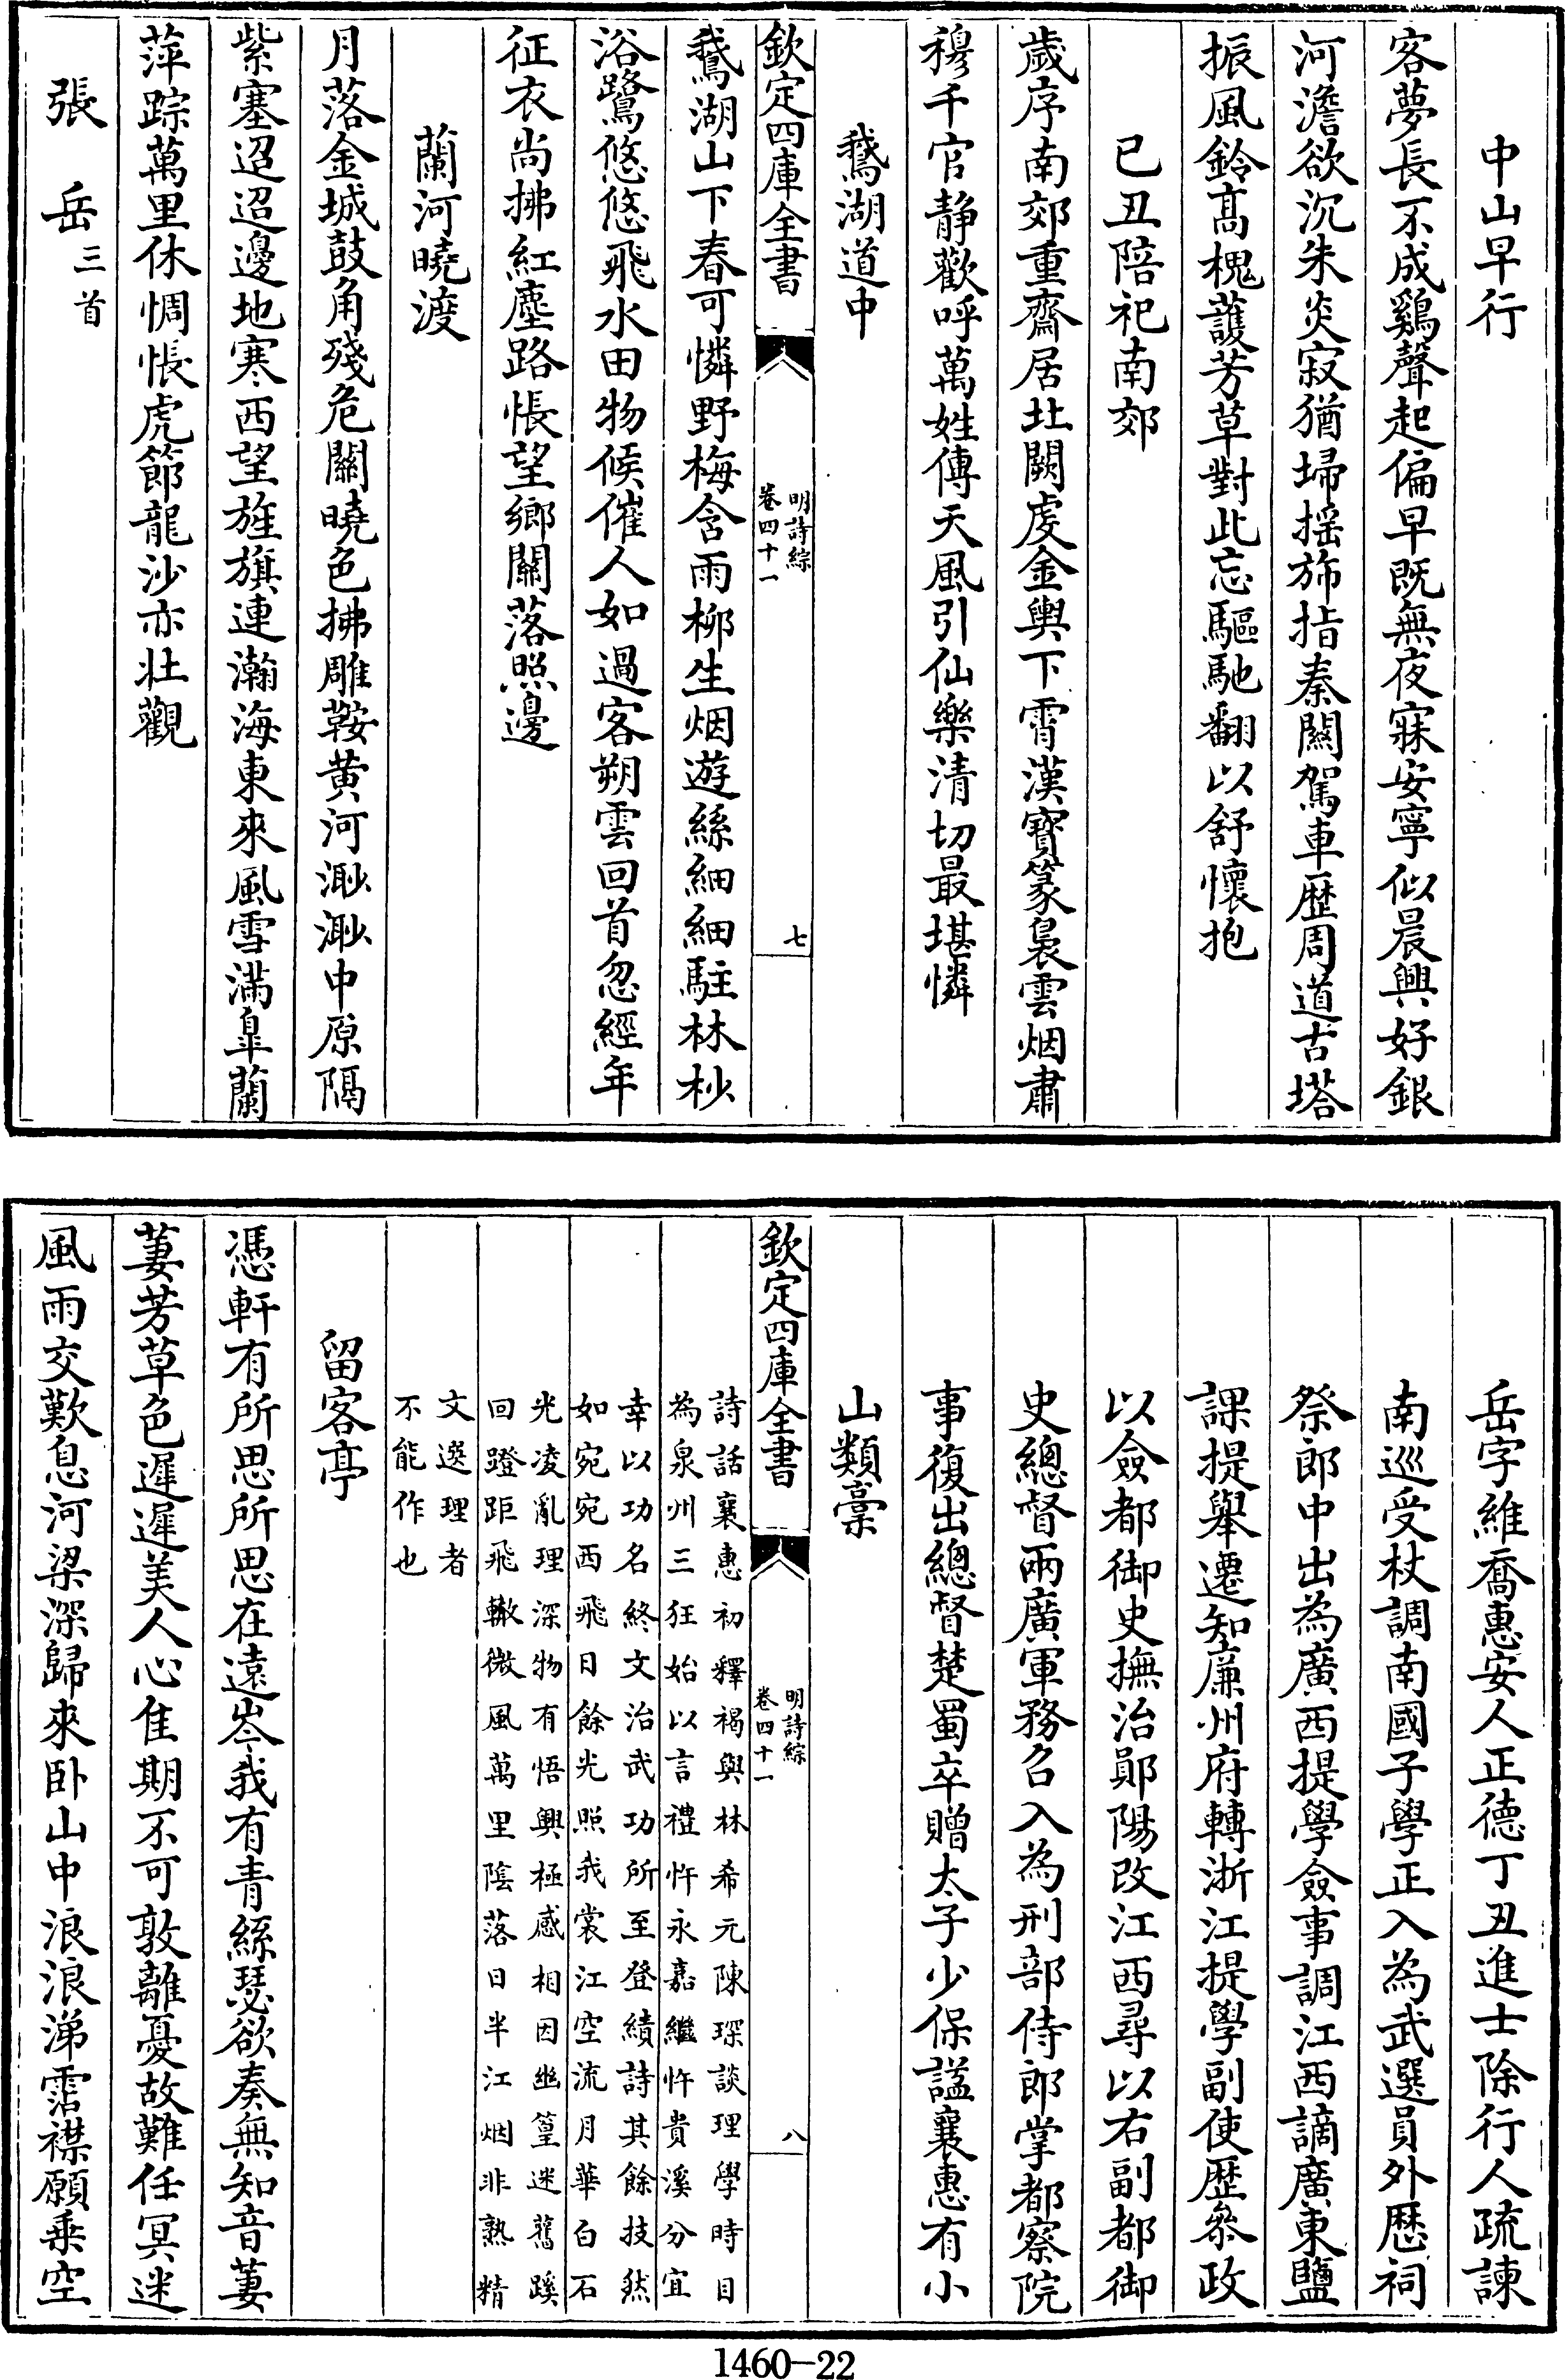 中山早行
客夢長不成鷄聲起偏早既無夜寐安寧似晨興好銀
河澹欲沉朱炎寂猶埽揺斾指秦闗駕車歴周道古塔
振風鈴髙槐䕶芳草對此忘驅馳翻以舒懷抱
已丑陪祀南郊
歳序南郊重齋居北闕虔金輿下霄漢寳篆裊雲烟肅
穆千官静歡呼萬姓傳天風引仙樂清切最堪憐
鵞湖道中
欽定四庫全書
明詩綜
卷四十一
七
鵞湖山下春可憐野梅含雨柳生烟遊絲細細駐林杪
浴鷺悠悠飛水田物候催人如過客朔雲回首忽經年
征衣尚拂紅塵路悵望鄉關落照邊
蘭河曉渡
月落金城鼓角殘危關曉色拂雕鞍黄河渺渺中原隔
紫塞迢迢邊地寒西望旌旗連瀚海東來風雪滿臯蘭
萍踪萬里休惆悵虎節龍沙亦壯觀
張岳三首
岳字維喬惠安人正德丁丑進士除行人疏諫
南巡受杖調南國子學正入為武選員外歴祠
祭郎中出為廣西提學僉事調江西謫廣東鹽
課提舉遷知亷州府轉浙江提學副使歴叅政
以僉都御史撫治鄖陽改江西尋以右副都御
史總督兩廣軍務召入為刑部侍郎掌都察院
事復出總督楚蜀卒贈太子少保諡襄惠有小
山類稾
欽定四庫全書
明詩綜
卷四十一
八
詩話襄惠初釋褐與林希元陳琛談理學時目
為泉州三狂始以言禮忤永嘉繼忤貴溪分宜
幸以功名終文治武功所至登績詩其餘技然
如宛宛西飛日餘光照我裳江空流月華白石
光凌亂理深物有悟興極感相因幽篁迷舊蹊
回蹬距飛轍微風萬里隂落日半江烟非熟精
文選理者
不能作也
留客亭
憑軒有所思所思在遠岑我有青絲瑟欲奏無知音萋
萋芳草色遲遲美人心佳期不可敦離憂故難任冥迷
風雨交歎息河梁深歸來卧山中浪浪涕霑襟願乗空
1460-22